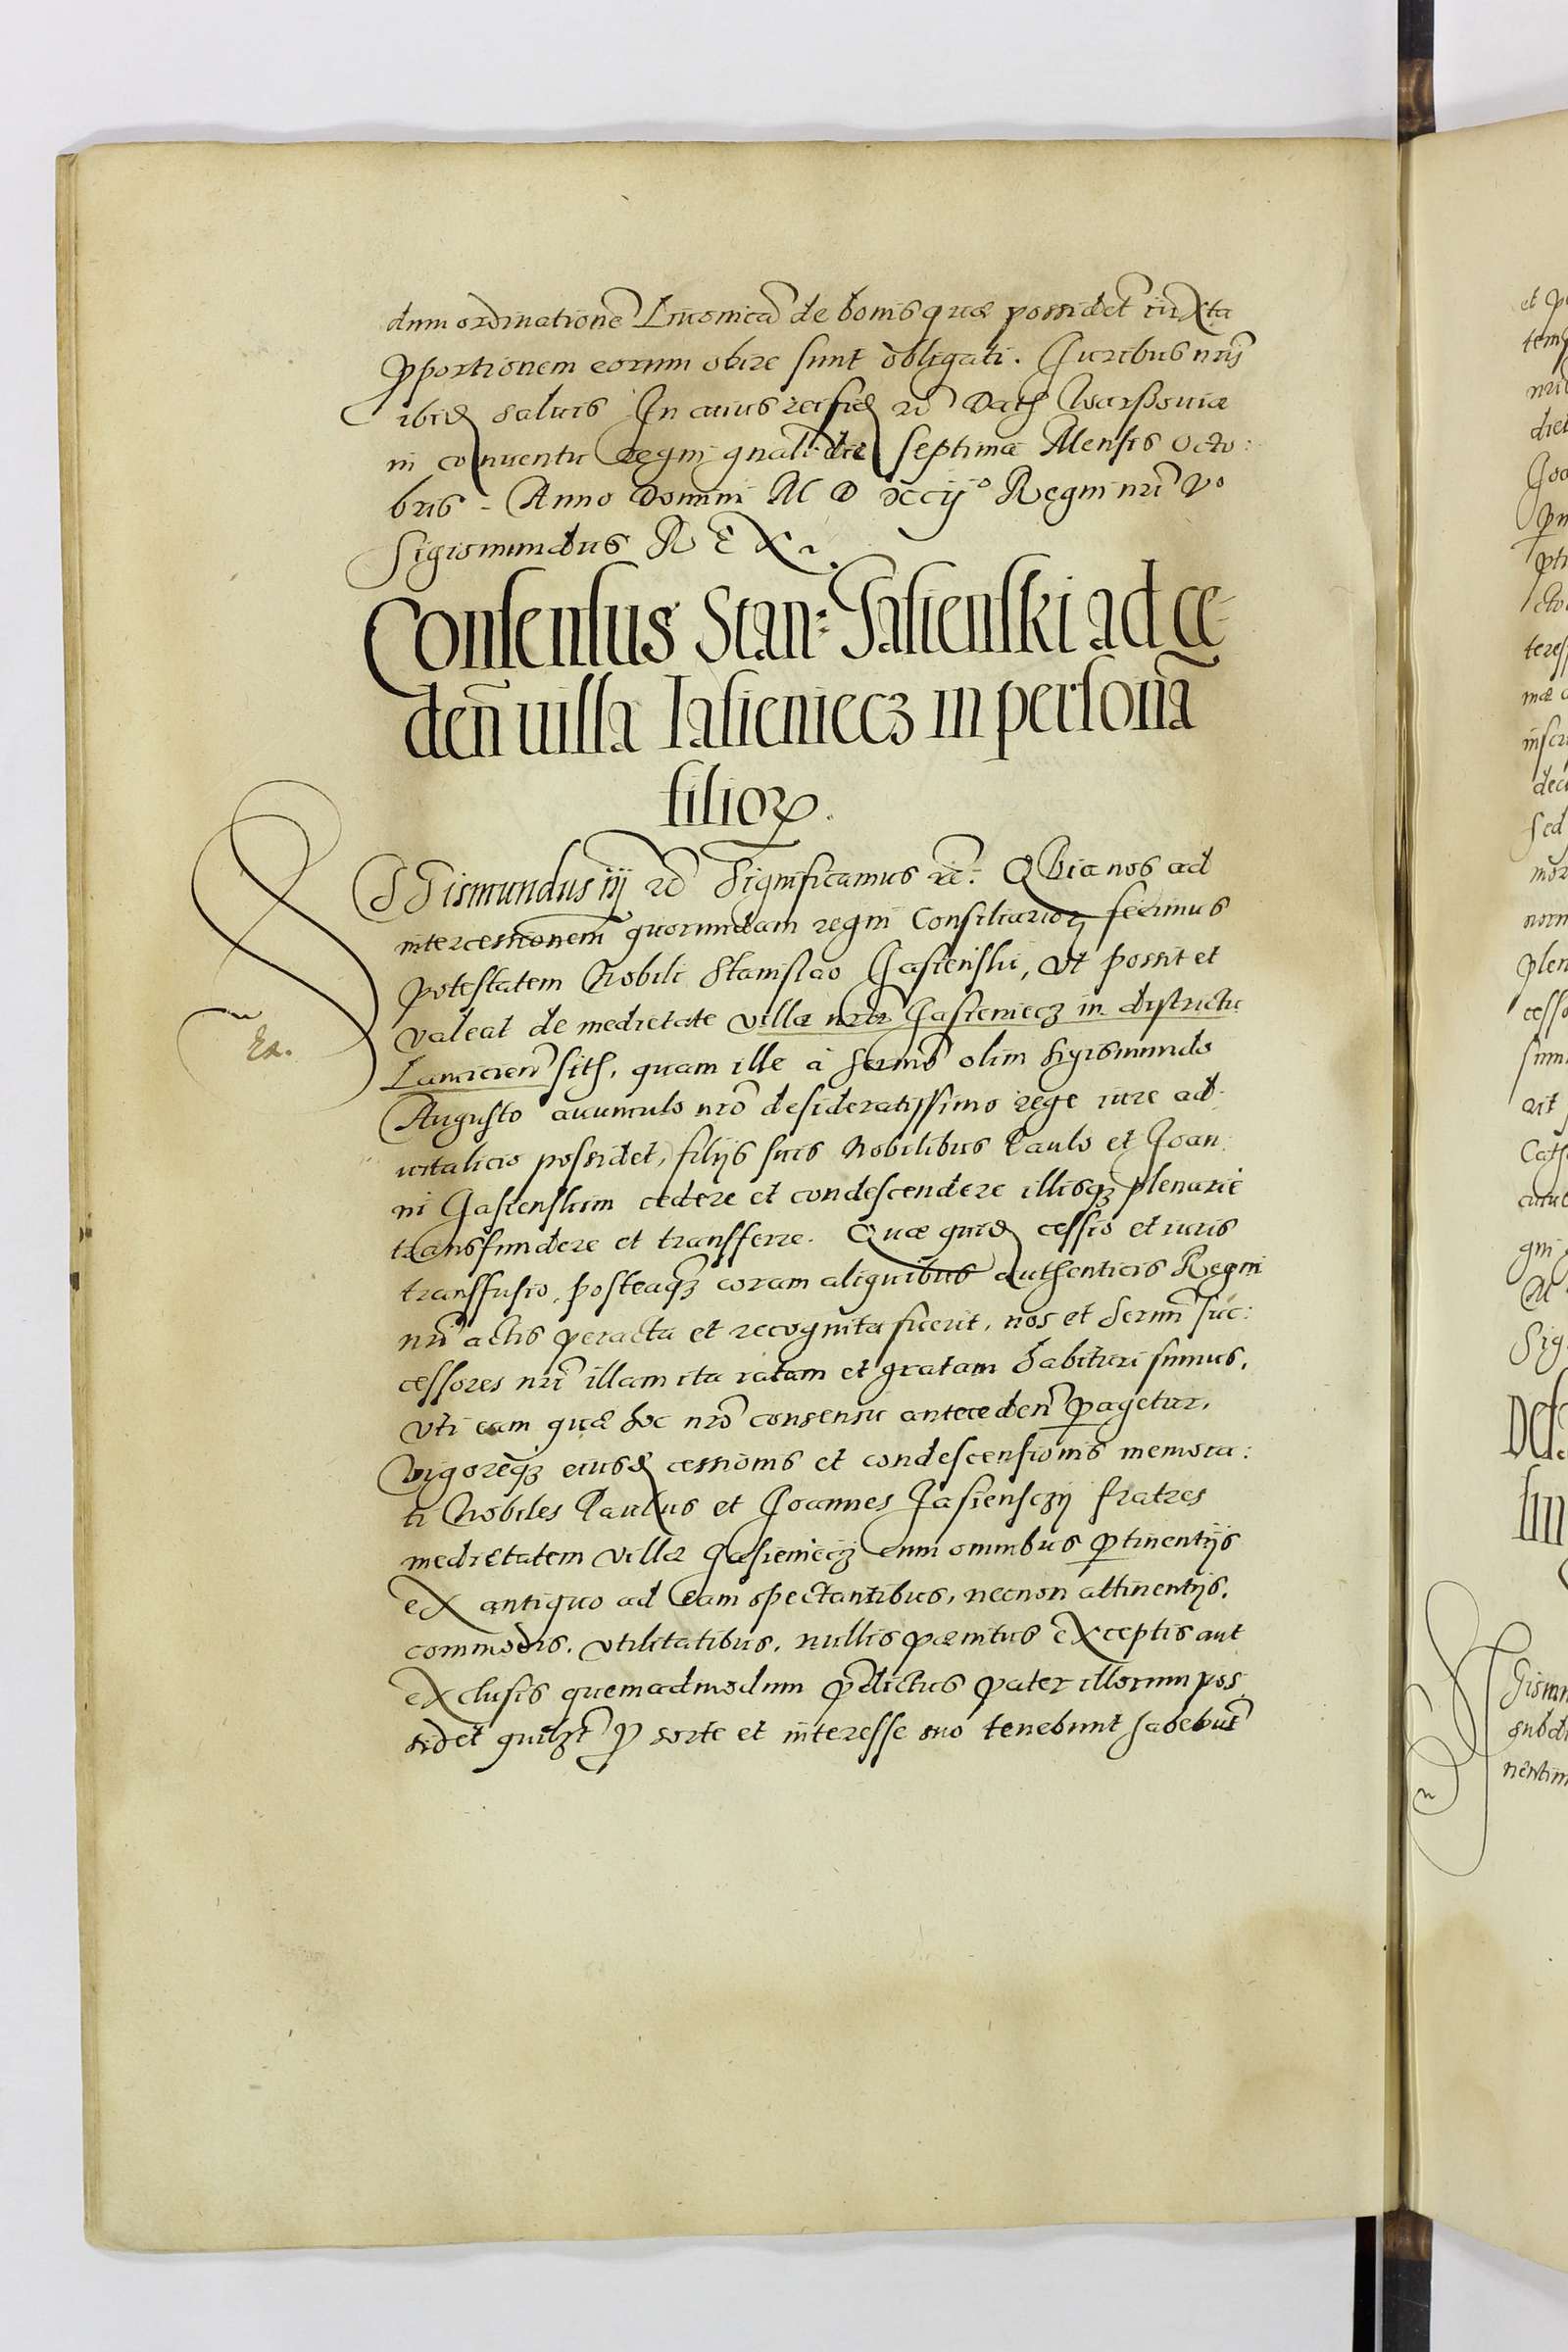 dum ordinatione Livonica de bonis quæ possidet iuxta
pportionem eorum obire sunt obligati. Iuribus nris
ibid salvis In cuius rei fid etc Dat Warssoviæ
in conventu regni gnali die septima Mensis Octo:
bris - Anno Domini M D XCij° Regni nri V°
Sigismundus REX.
Consensus Stan: Jasienski ad ce-
den villa Jasieniecz in persona
filior.
SIGismundus iij etc Significamus etc: QVia nos ad
intercessionem quorundam regni Consiliarior fecimus
potestatem Nobili Stanislao Jasienski, ut possit et
valeat de medietate villæ nræ Jasieniecz in districtu
Lancicien sit, quam ille à sermo olim Sigismundo
Augusto avunculo nro desideratissimo rege iure ad
vitalicio possidet, filijs suis Nobilibus Paulo et Joan:
ni Jasienskim cedere et condescendere illisq plenarie
transfundere et transferre. Quæ quid cessio et iuris
transfusio, posteaq coram aliquibus authenticis Regni
nri actis peracta et recognita fuerit, nos et sermi suc:
cessores nri illam ita ratam et gratam habituri sumus,
uti eam quæ hoc nro consensu anteceden pagetur,
vigoreq eiusd cessionis et condescensionis memora:
ti Nobiles Paulus et Joannes Jasiensczy fratres
medietatem villæ Jasieniecz cum omnibus ptinentijs
ex antiquo ad eam spectantibus, necnon attinentijs,
commodis, utilitatibus, nullis pænitus exceptis aut
exclusis quemadmodum pdictus pater illorum pos
sidet quilzt p sorte et interesse suo tenebunt habebunt
Ex.